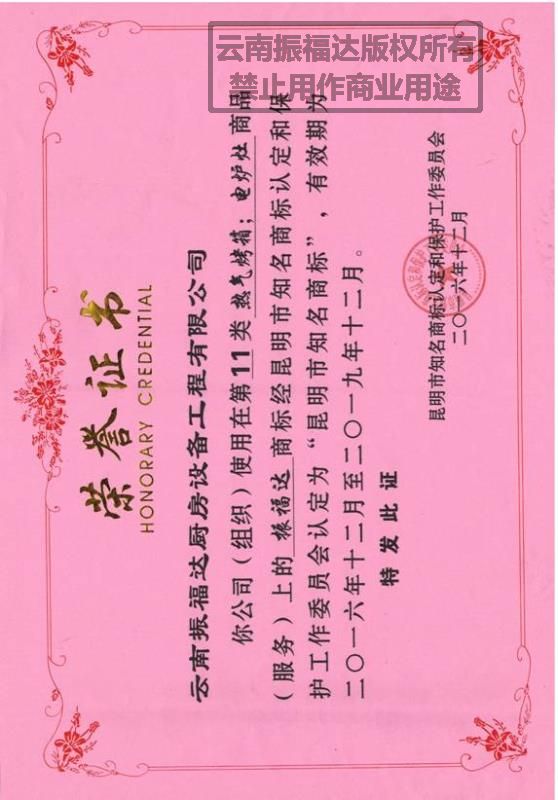 云南振福达版权所有
禁止用作商业用途
荣誉证书
HONORARY CREDENTIAL
云南振福达厨房设备工程有限公司
你公司（组织）使用在第11类热气烤箱；电炉灶商品
（服务）上的振福达商标经昆明市知名商标认定和保
护工作委员会认定为“昆明市知名商标”，有效期为
二〇一六年十二月至二〇一九年十二月。
特发此证
昆明市知名商标认定和保护工作委员会
二〇一六年十二月